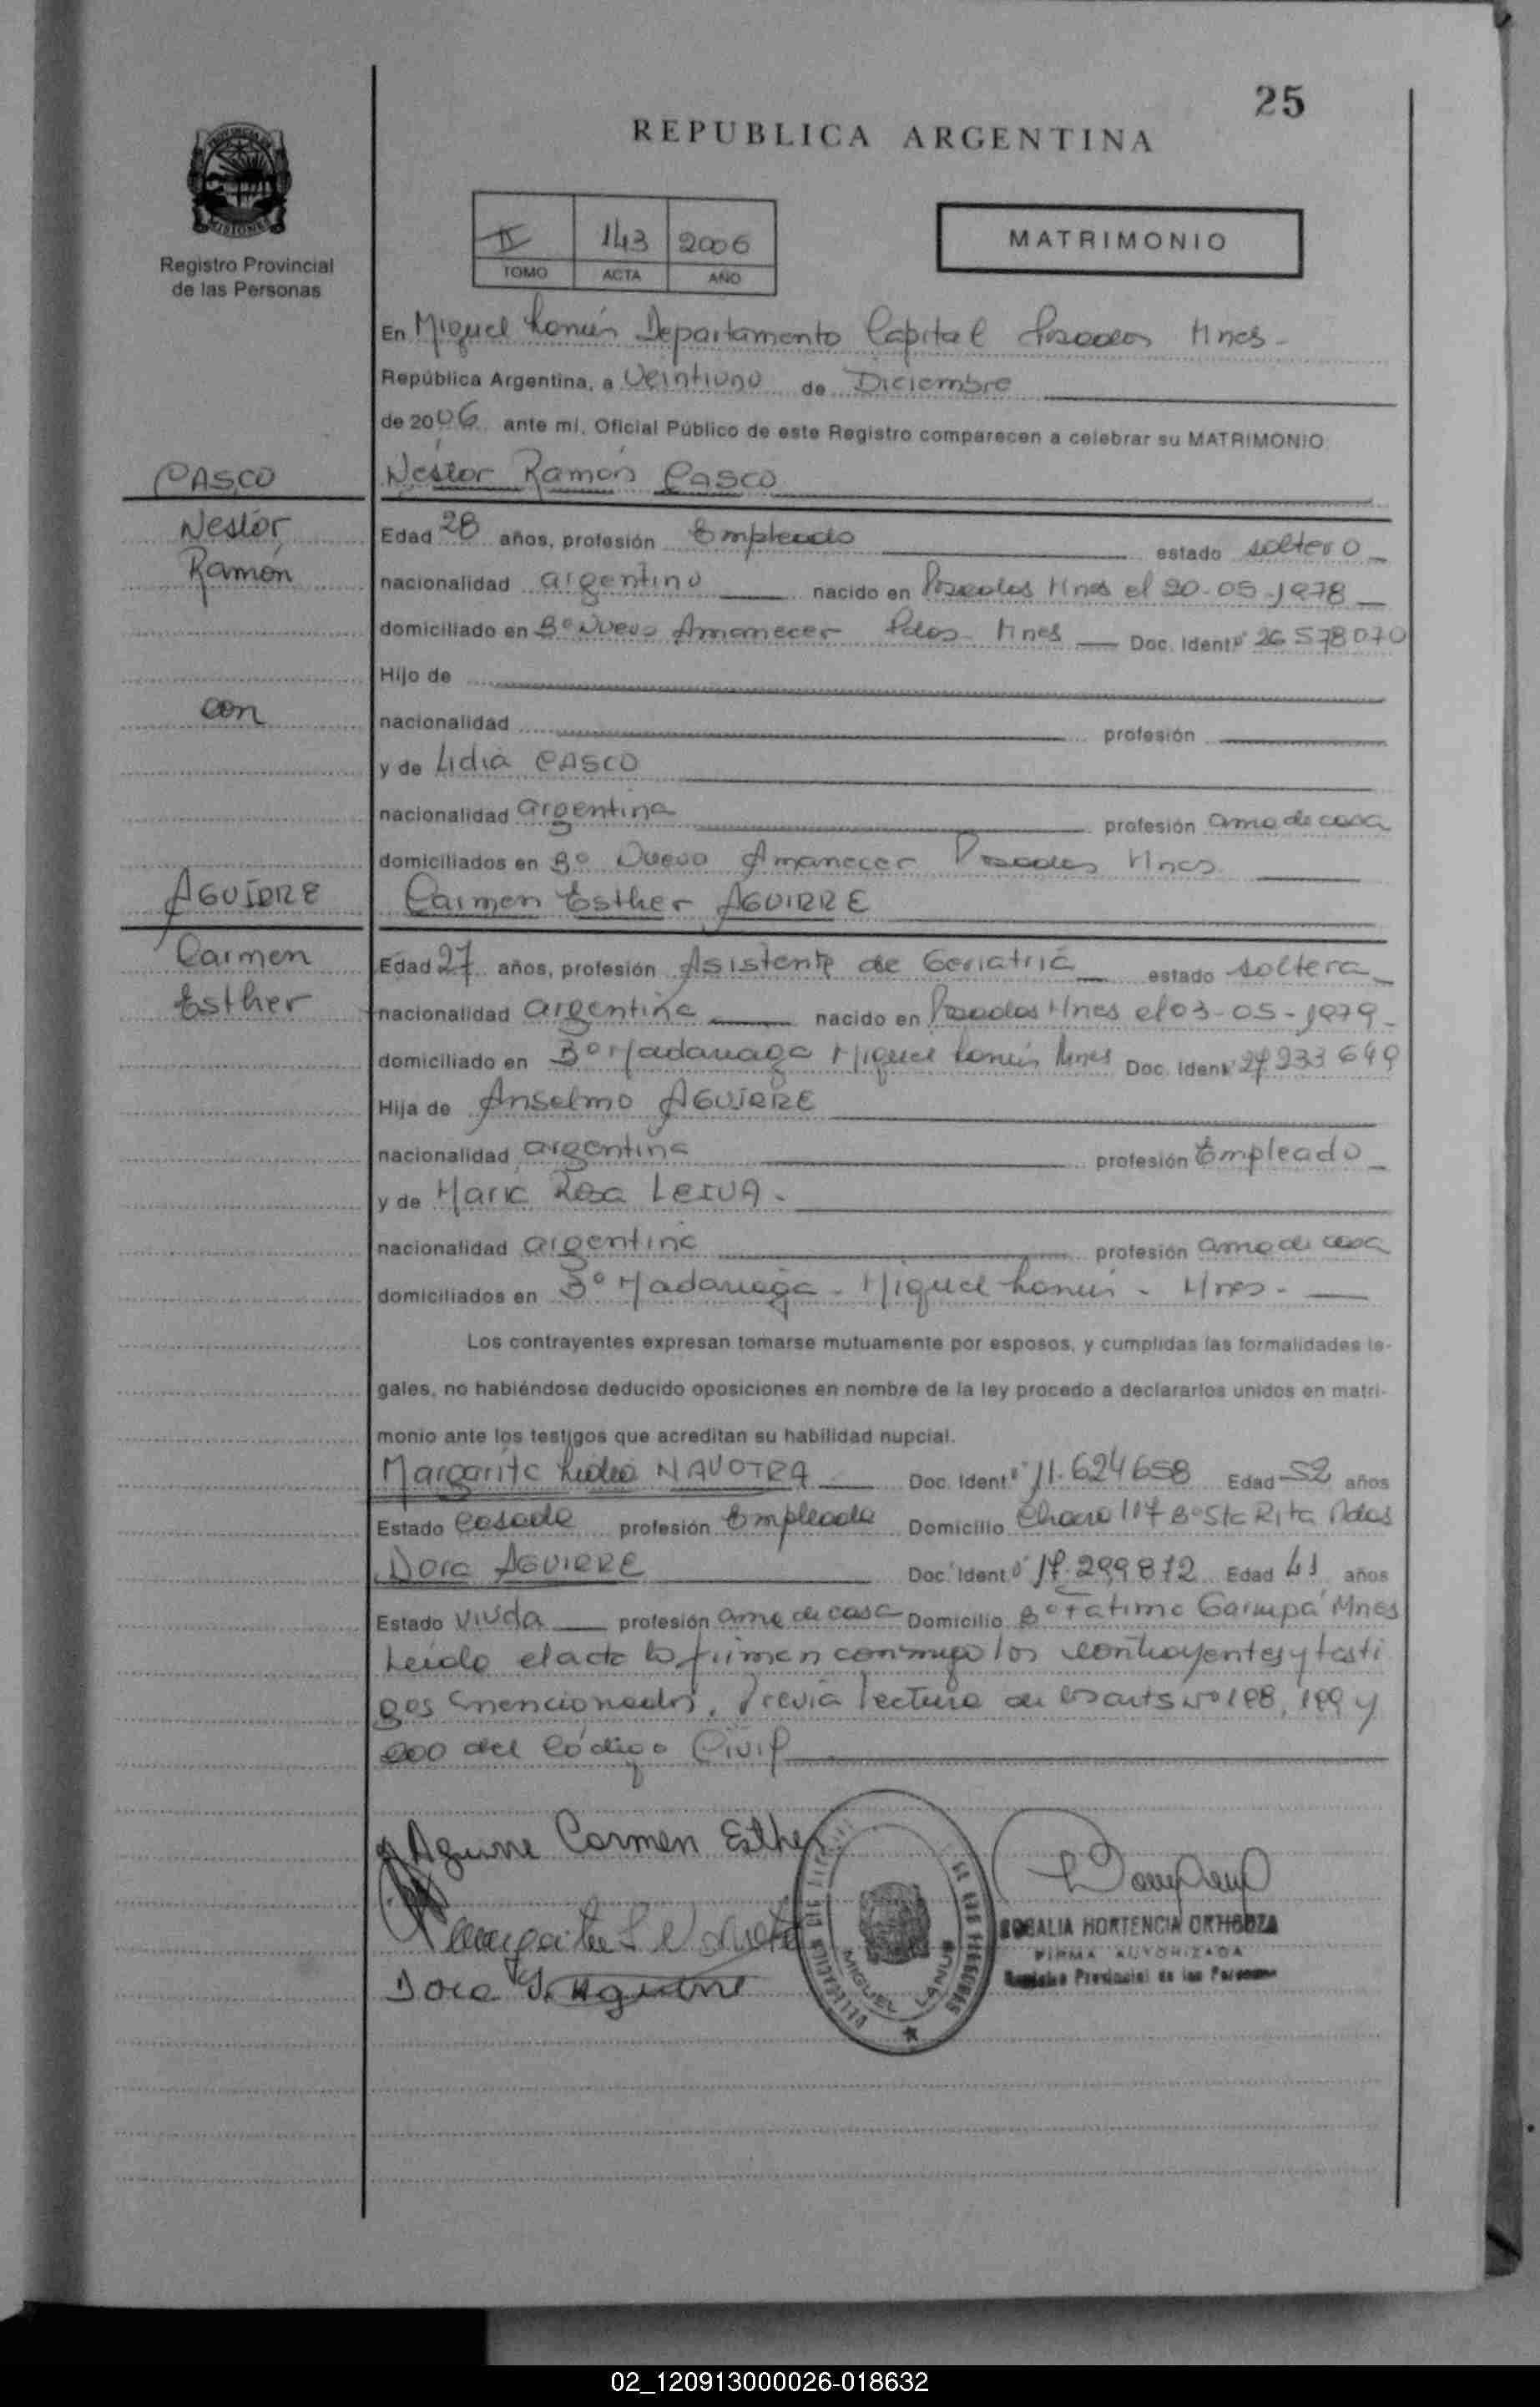 25
REPUBLICA ARGENTINA
PROVINCIA DE
MISIONES
Registro Provincial
de las Personas
II 143 2006
TOMO ACTA AÑO
MATRIMONIO
En Miguel Lanús Departamento Capital Posadas Mnes-
República Argentina, a Veintiuno de Diciembre
de 2006 ante mí, Oficial Público de este Registro comparecen a celebrar su MATRIMONIO
CASCO
Néstor Ramón Casco
Nestor
Ramón
Edad 28 años, profesión Empleado estado soltero
nacionalidad argentino nacido en Posadas Mnes el 20-05-1978
domiciliado en Bº Nuevo Amanecer Pdas- Mnes Doc. Ident. 26 578 070
Hijo de
con
nacionalidad profesión
y de Lidia CASCO
nacionalidad argentina profesión ama de casa
domiciliados en Bº Nuevo Amanecer Posadas Mnes
AGUIRRE
Carmen Esther AGUIRRE
Carmen
Esther
Edad 27 años, profesión Asistente de Geriatria estado soltera
nacionalidad argentina nacido en Posadas Mnes el 03-05-1979-
domiciliado en Bº Madariaga Miguel Lanús Mnes Doc. Ident. 27 233 649
Hija de Anselmo AGUIRRE
nacionalidad argentina profesión Empleado
y de Maria Rosa LEIVA.
nacionalidad argentina profesión ama de casa
domiciliados en Bº Madariaga - Miguel Lanús - Mnes-
Los contrayentes expresan tomarse mutuamente por esposos, y cumplidas las formalidades le-
gales, no habiéndose deducido oposiciones en nombre de la ley procedo a declararlos unidos en matri-
monio ante los testigos que acreditan su habilidad nupcial.
Margarita Lidia Doc. Ident. 11.624658 Edad 52 años
Estado Casada profesión Empleada Domicilio Chacra 117 Bº Sta Rita Pdas
Dora AGUIRRE Doc. Ident. 17.299872 Edad 41 años
Estado Viuda profesión ama de casa Domicilio Bº Fatima Garupá Mnes
Leída el acta la firman conmigo los contrayentes y testi
gos mencionados, Previa lectura de los arts Nº 198, 199 y
200 del Código Civil
Aguirre Carmen Esther
Margarita L
Dora Aguirre
DELEGACION
MIGUEL LANUS
DE LAS PERSONAS
ROSALIA HORTENCIA ORTIGOZA
FIRMA AUTORIZADA
Registro Provincial de las Personas
02_120913000026-018632